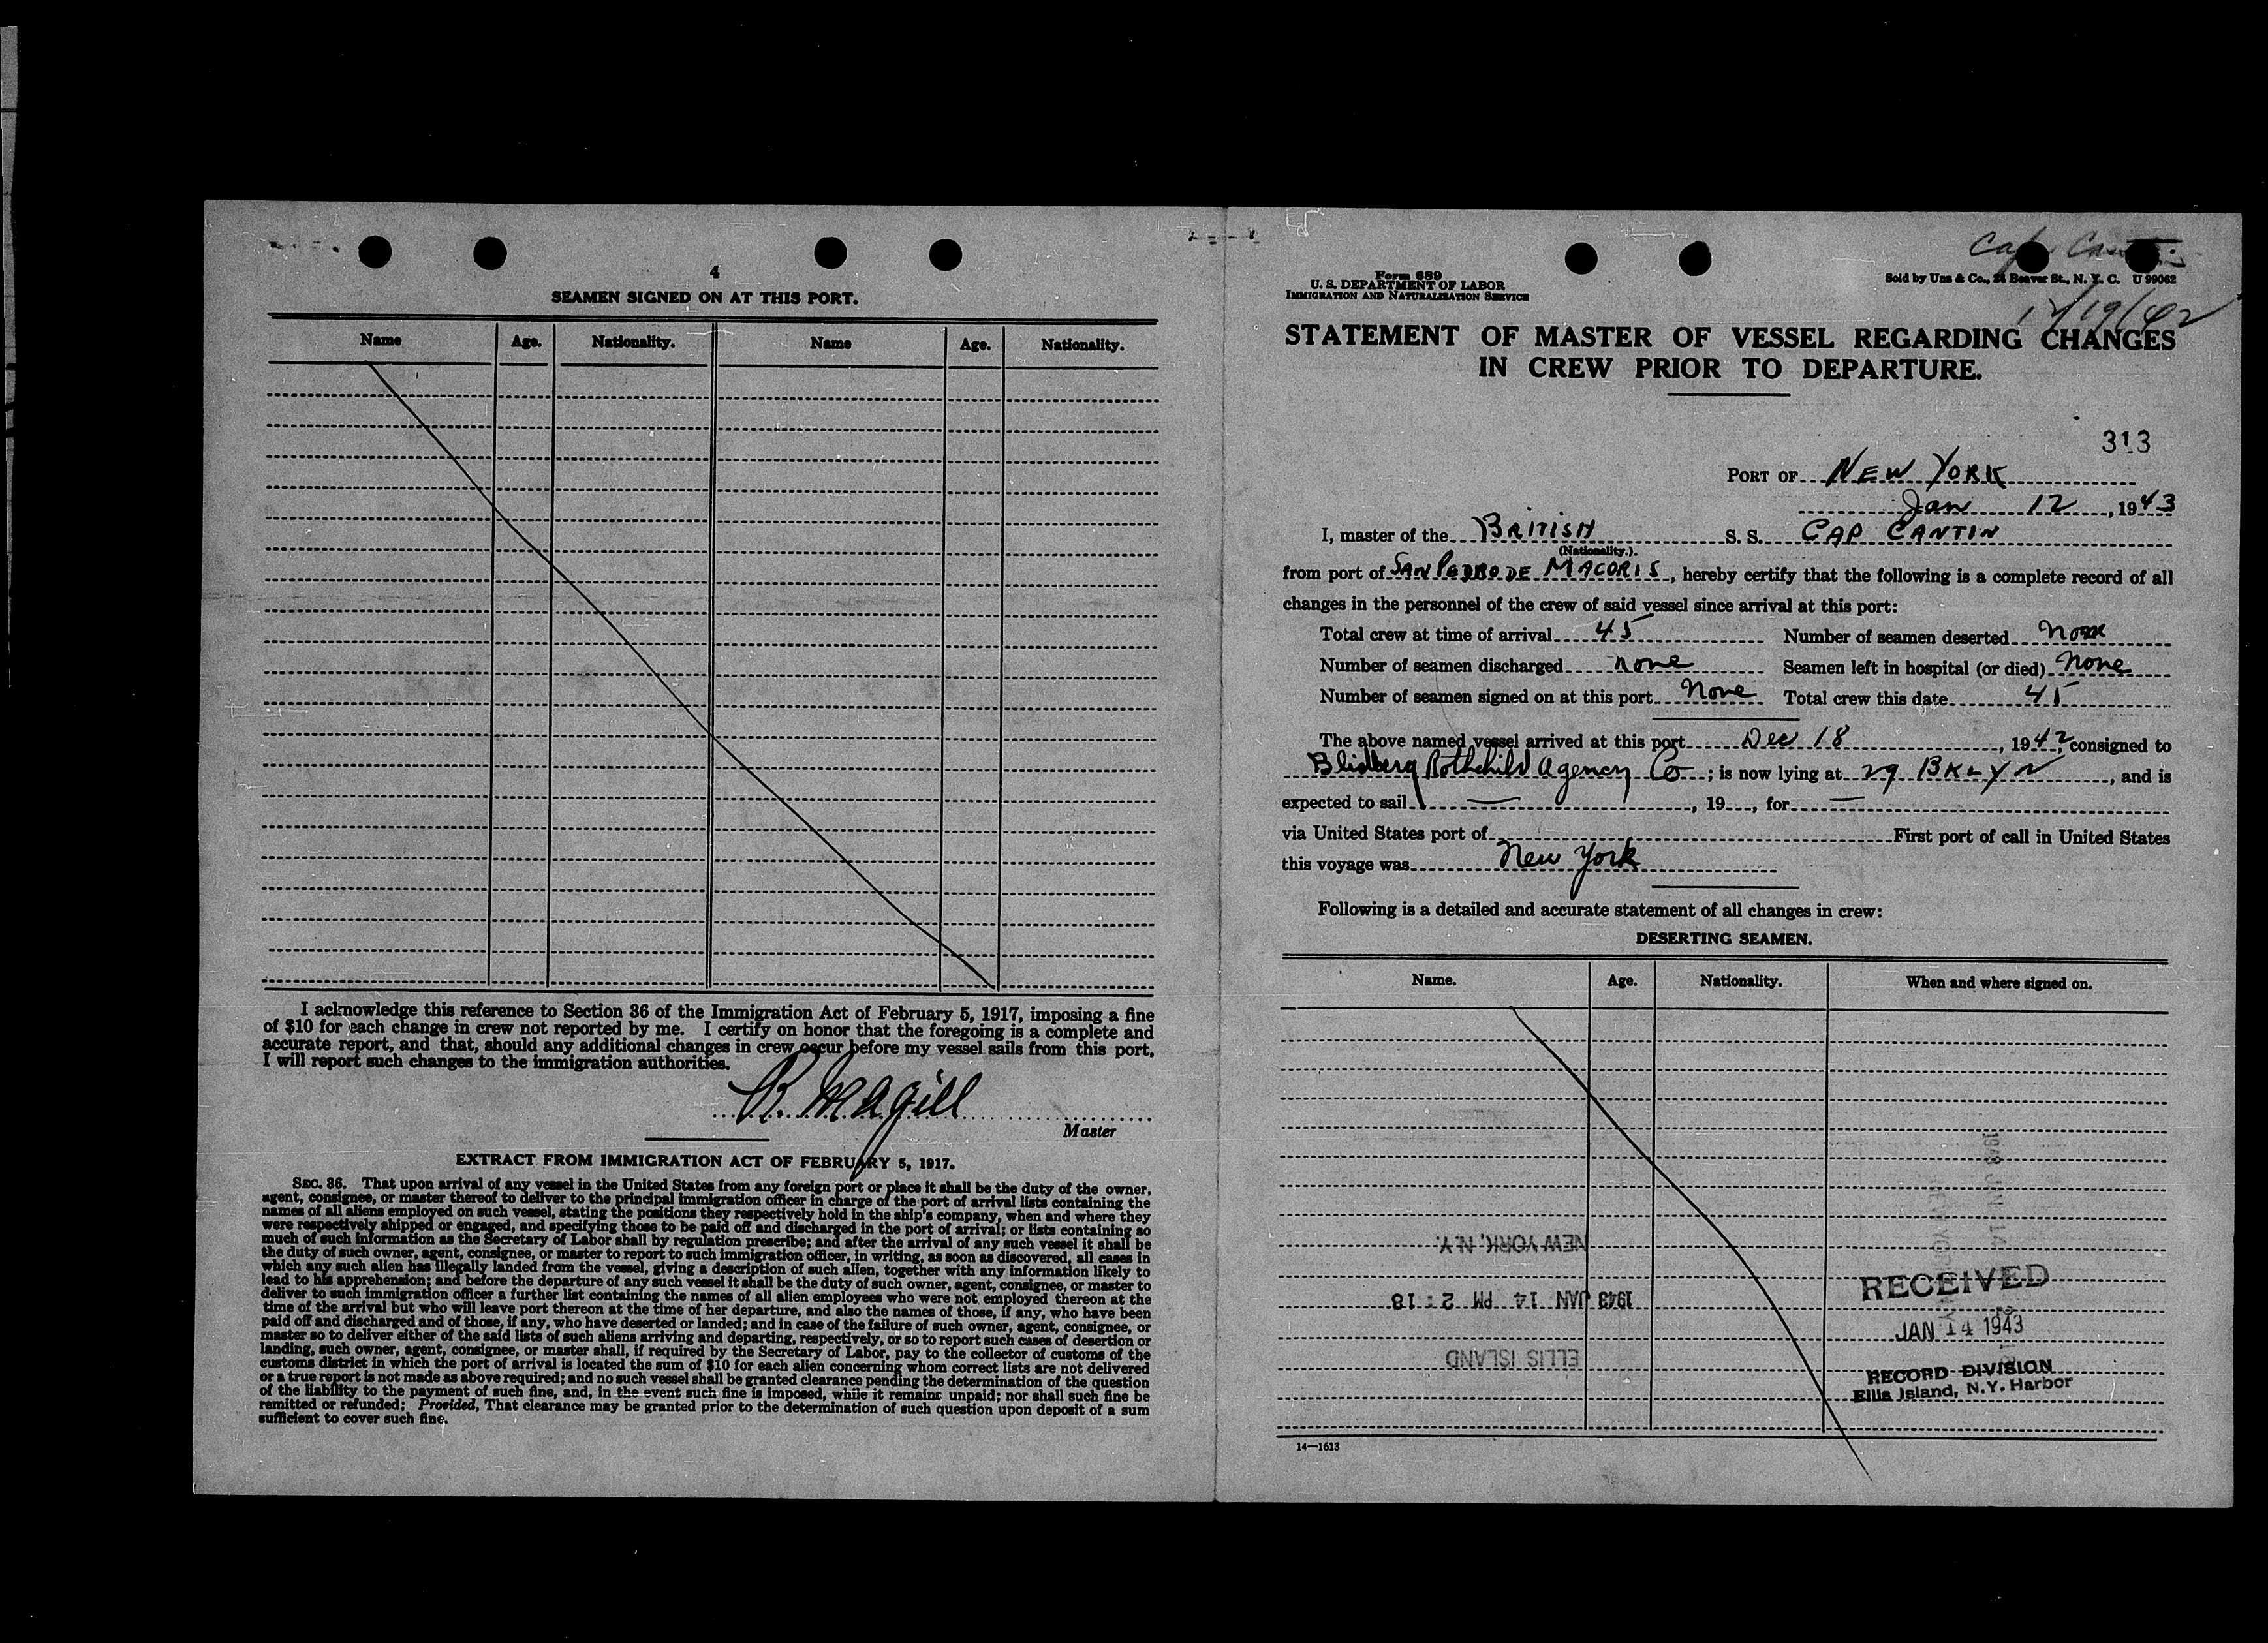 4
SEAMEN SIGNED ON AT THIS PORT.
Name Age. Nationality. Name Age. Nationality.
I acknowledge this reference to Section 36 of the Immigration Act of February 5, 1917, imposing a fine
of $10 for each change in crew not reported by me. I certify on honor that the foregoing is a complete and
accurate report, and that, should any additional changes in crew occur before my vessel sails from this port,
I will report such changes to the immigration authorities.
R. Magill
Master
EXTRACT FROM IMMIGRATION ACT OF FEBRUARY 5, 1917.
SEC. 36. That upon arrival of any vessel in the United States from any foreign port or place it shall be the duty of the owner,
agent, consignee, or master thereof to deliver to the principal immigration officer in charge of the port of arrival lists containing the
names of all aliens employed on such vessel, stating the positions they respectively hold in the ship's company, when and where they
were respectively shipped or engaged, and specifying those to be paid off and discharged in the port of arrival; or lists containing so
much of such information as the Secretary of Labor shall by regulation prescribe; and after the arrival of any such vessel it shall be
the duty of such owner, agent, consignee, or master to report to such immigration officer, in writing, as soon as discovered, all cases in
which any such alien has illegally landed from the vessel, giving a description of such alien, together with any information likely to
lead to his apprehension; and before the departure of any such vessel it shall be the duty of such owner, agent, consignee, or master to
deliver to such immigration officer a further list containing the names of all alien employees who were not employed thereon at the
time of the arrival but who will leave port thereon at the time of her departure, and also the names of those, if any, who have been
paid off and discharged and of those, if any, who have deserted or landed; and in case of the failure of such owner, agent, consignee, or
master so to deliver either of the said lists of such aliens arriving and departing, respectively, or so to report such cases of desertion or
landing, such owner, agent, consignee, or master shall, if required by the Secretary of Labor, pay to the collector of customs of the
customs district in which the port of arrival is located the sum of $10 for each alien concerning whom correct lists are not delivered
or a true report is not made as above required; and no such vessel shall be granted clearance pending the determination of the question
of the liability to the payment of such fine, and, in the event such fine is imposed, while it remains unpaid; nor shall such fine be
remitted or refunded; Provided, That clearance may be granted prior to the determination of such question upon deposit of a sum
sufficient to cover such fine.
Form 689
U. S. DEPARTMENT OF LABOR
IMMIGRATION AND NATURALIZATION SERVICE
Cap
Sold by Unz & Co., 24 Beaver St., N. Y. C. U 99062
12/19/42
STATEMENT OF MASTER OF VESSEL REGARDING CHANGES
IN CREW PRIOR TO DEPARTURE.
313
PORT OF NEW YORK
Jan 12, 1943
I, master of the BRITISH S. S. CAP CANTIN
(Nationality.)
from port of SAN PEDRO DE MACORIS, hereby certify that the following is a complete record of all
changes in the personnel of the crew of said vessel since arrival at this port:
Total crew at time of arrival 45 Number of seamen deserted None
Number of seamen discharged none Seamen left in hospital (or died) None
Number of seamen signed on at this port None Total crew this date 45
The above named vessel arrived at this port Dec 18, 1942, consigned to
Blidberg Rothchild Agency Co; is now lying at 29 BKLYN, and is
expected to sail —, 19 , for —
via United States port of First port of call in United States
this voyage was New York
Following is a detailed and accurate statement of all changes in crew:
DESERTING SEAMEN.
Name. Age. Nationality. When and where signed on.
NEW YORK, N.Y.
1943 JAN 14 PM 2:18
ELLIS ISLAND
RECEIVED
JAN 14 1943
RECORD DIVISION
Ellis Island, N.Y. Harbor
14—1613